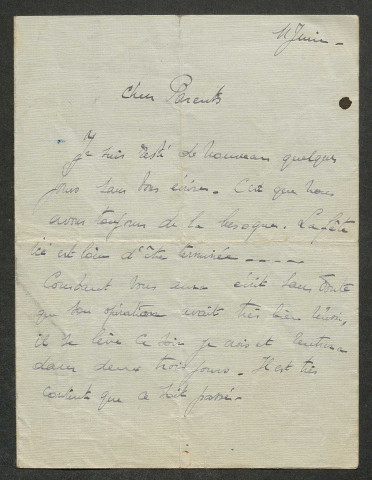 11 Juin -
Chers Parents
Je suis resté de nouveau quelques
jours sans vous écrire. C'est que nous
avons toujours de la besogne. La fête
ici est loin d'être terminée - - - -
Constant vous aura écrit sans doute
que son opération avait très bien réussi,
il se lève ce soir je crois et rentrera
dans deux trois jours. Il est très
content que ce soit passé.